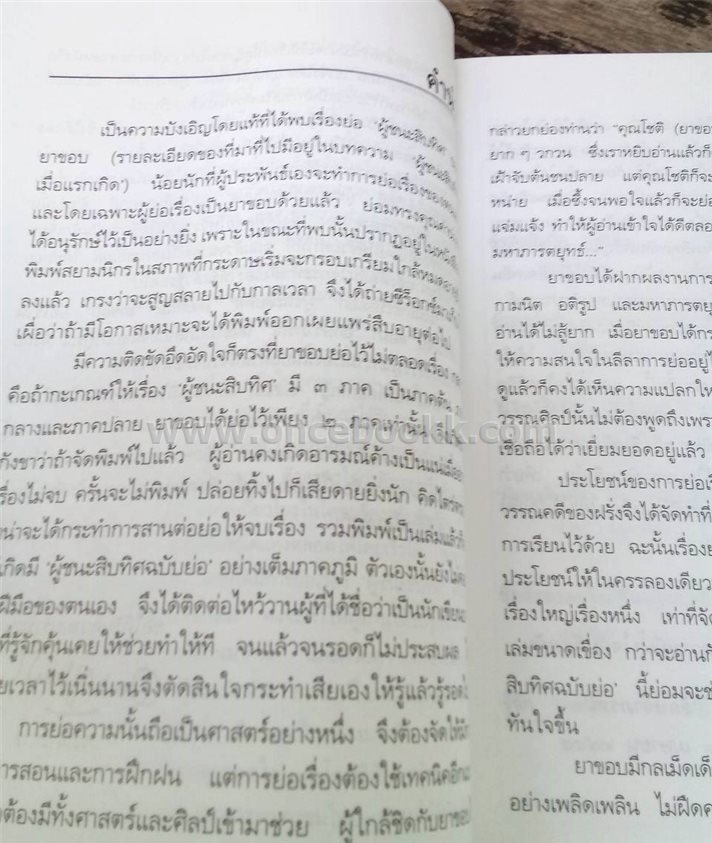 คำนำ
เป็นความบังเอิญโดยแท้ที่ได้พบเรื่องย่อ 'ผู้ชนะสิบทิศ'
ยาขอบ (รายละเอียดของที่มาที่ไปมีอยู่ในบทความ 'ผู้ชนะสิบทิศ
เมื่อแรกเกิด') น้อยนักที่ผู้ประพันธ์เองจะทำการย่อเรื่องของตน
และโดยเฉพาะผู้ย่อเรื่องเป็นยาขอบด้วยแล้ว ย่อมทรงคุณค่า
ได้อนุรักษ์ไว้เป็นอย่างยิ่ง เพราะในขณะที่พบนั้นปรากฏอยู่ในหนังสือ
พิมพ์สยามนิกรในสภาพที่กระดาษเริ่มจะกรอบเกรียมใกล้หมดอายุ
ลงแล้ว เกรงว่าจะสูญสลายไปกับกาลเวลา จึงได้ถ่ายซีร็อกซ์มาเก็บ
เผื่อว่าถ้ามีโอกาสเหมาะจะได้พิมพ์ออกเผยแพร่สืบอายุต่อไป
มีความติดขัดอึดอัดใจก็ตรงที่ยาขอบย่อไว้ไม่ตลอดเรื่อง
คือถ้ากะเกณฑ์ให้เรื่อง 'ผู้ชนะสิบทิศ' มี ๓ ภาค เป็นภาคต้น
กลางและภาคปลาย ยาขอบได้ย่อไว้เพียง ๒ ภาคเท่านั้น จึง
กังขาว่าถ้าจัดพิมพ์ไปแล้ว ผู้อ่านคงเกิดอารมณ์ค้างเป็นแน่
รื่องไม่จบ ครั้นจะไม่พิมพ์ ปล่อยทิ้งไปก็เสียดายยิ่งนัก คิดไตร่ตรอง
น่าจะได้กระทำการสานต่อย่อให้จบเรื่อง รวมพิมพ์เป็นเล่มแล้ว
เกิดมี 'ผู้ชนะสิบทิศฉบับย่อ' อย่างเต็มภาคภูมิ ตัวเองนั้นยังไม่
ฝีมือของตนเอง จึงได้ติดต่อไหว้วานผู้ที่ได้ชื่อว่าเป็นนักเขียน
ที่รู้จักคุ้นเคยให้ช่วยทำให้ที จนแล้วจนรอดก็ไม่ประสบผล
ยเวลาไว้เนิ่นนานจึงตัดสินใจกระทำเสียเองให้รู้แล้วรู้รอด
การย่อความนั้นถือเป็นศาสตร์อย่างหนึ่ง จึงต้องจัดให้มี
ารสอนและการฝึกฝน แต่การย่อเรื่องต้องใช้เทคนิคอีก
ต้องมีทั้งศาสตร์และศิลป์เข้ามาช่วย ผู้ใกล้ชิดกับยาขอบ
กล่าวยกย่องท่านว่า "คุณโชติ (ยาขอ
ยาก ๆ วกวน ซึ่งเราหยิบอ่านแล้วก็
เฝ้าจับต้นชนปลาย แต่คุณโชติก็จะ
หน่าย เมื่อซึ้งจนพอใจแล้วก็จะย่อ
แจ่มแจ้ง ทำให้ผู้อ่านเข้าใจได้ดีตลอ
มหาภารตยุทธ์..."
ยาขอบได้ฝากผลงานการ
กามนิต อติรูป และมหาภารตยุ
อ่านได้ไม่สู้ยาก เมื่อยาขอบได้กร
ให้ความสนใจในลีลาการย่ออยู่
ดูแล้วก็คงได้เห็นความแปลกให
วรรณศิลป์นั้นไม่ต้องพูดถึงเพรา
เชื่อถือได้ว่าเยี่ยมยอดอยู่แล้ว
ประโยชน์ของการย่อเรื
วรรณคดีของฝรั่งจึงได้จัดทำที่
การเรียนไว้ด้วย ฉะนั้นเรื่องย
ประโยชน์ให้ในครรลองเดียว
เรื่องใหญ่เรื่องหนึ่ง เท่าที่จัด
เล่มขนาดเขื่อง กว่าจะอ่านก
สิบทิศฉบับย่อ' นี้ย่อมจะช
ทันใจขึ้น
ยาขอบมีกลเม็ดเด็
อย่างเพลิดเพลิน ไม่ฝืดค
www.oncebookk.com